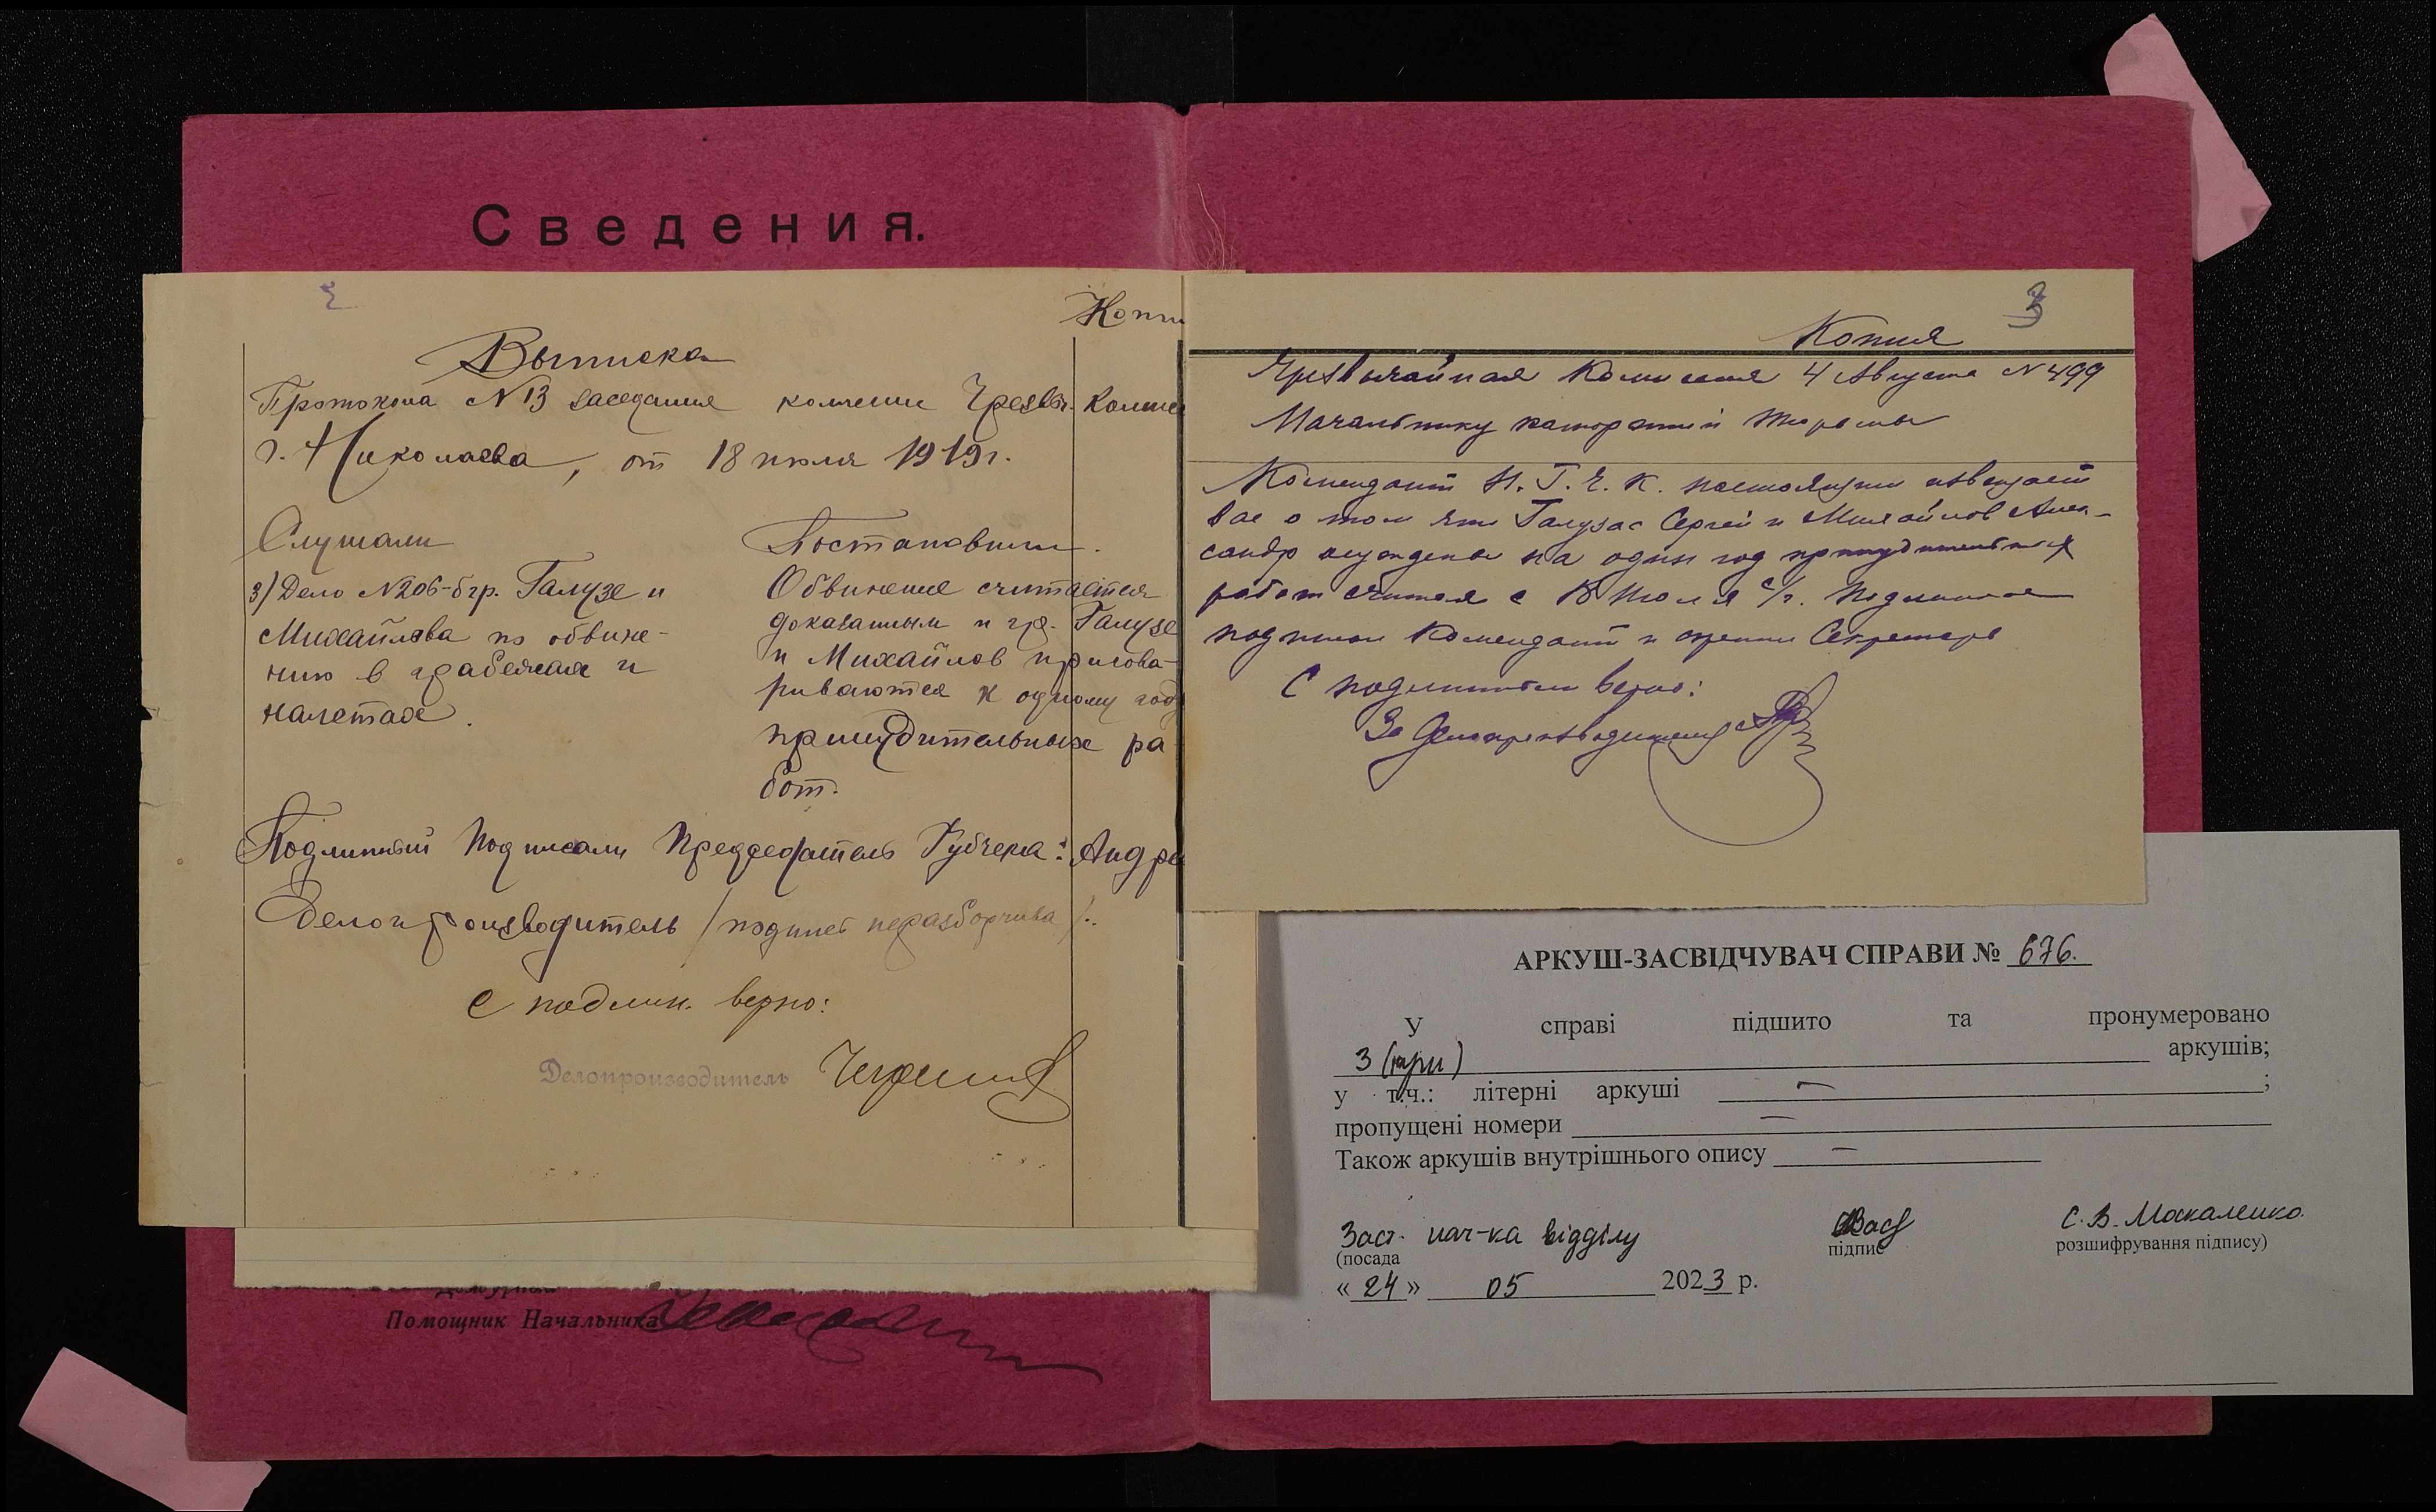 Сведения.
Копи
Выписка
Протокола №13 заседания коллегии Чрезвыч. Комис
г. Николаева, от 18 июля 1919г.
Слушали
3) Дело №206-б гр. Галузе и
Михайлова по обвине-
нию в грабежах и
налетах.
Постановили.
Обвинение считается
доказанным и гр. Галузе
и Михайлов пригова-
риваются к одному год
принудительных ра-
бот.
Подлинный подписали Председатель Губчека: Андре
Делопроизводитель /подпись неразборчива/.
С подлин. верно:
Делопроизводитель
Помощник Начальника
3
Копия
Чрезвычайная Комиссия 4 Августа №499
Начальнику каторжной тюрьмы
Комендант Н.Г.Ч.К. настоящим извещает
вас о том что Галузас Сергей и Михайлов Алек-
сандр осуждены на один год принудительных
работ считая с 18 Июля с/г. Подлинное
подписали Комендант и Секретарь
С подлинным верно:
За Делопроизводителя
АРКУШ-ЗАСВІДЧУВАЧ СПРАВИ № 676.
У справі підшито та пронумеровано
3 (три) аркушів;
у т.ч.: літерні аркуші — ;
пропущені номери —
Також аркушів внутрішнього опису —
Заст. нач-ка відділу С.В. Макаленко
(посада підпис розшифрування підпису)
«24» 05 2023 р.